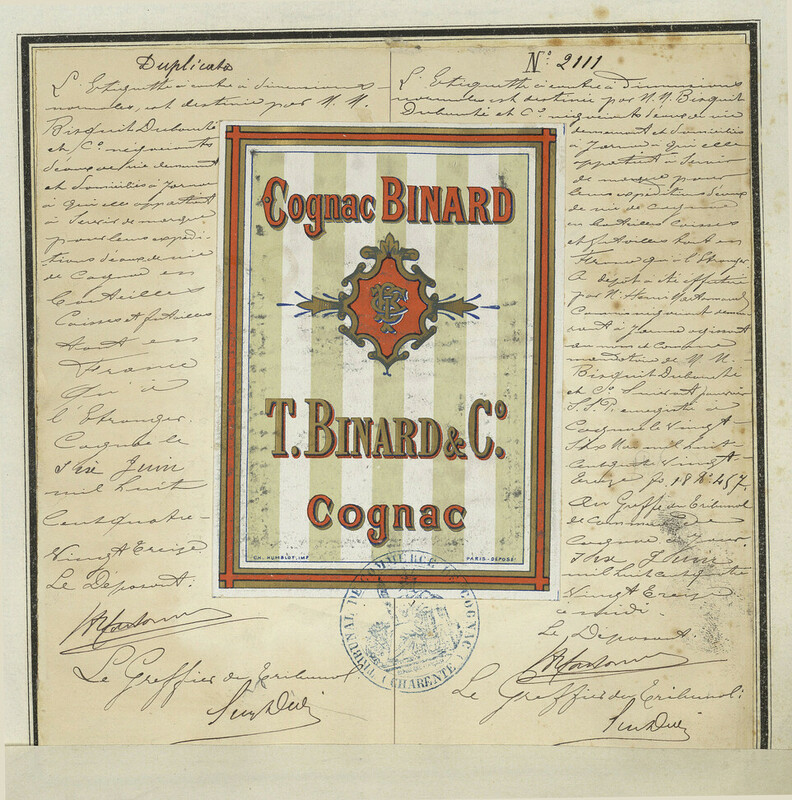 Duplicata
L'Etiquette ci-contre à dimensions
normales, est destinée par M. M.
Bisquit Dubouché
et Cie négociants
d'eaux de vie demeurant
et domiciliés à Jarnac
à qui elle appartient
à Servir de marque
pour leurs expédi-
tions d'eaux de vie
de Cognac en
bouteilles
Caisses et futailles
tant en
France
qu'à
l'Etranger.
Cognac le
Six Juin
mil huit
cent quatre-
Vingt Treize.
Le Déposant:
Le Greffier du Tribunal
N° 2111
L'Etiquette ci-contre à dimensions
normales est destinée par M. M. Bisquit
Dubouché et Cie négociants d'eaux de vie
demeurant et domiciliés
à Jarnac à qui elle
appartient à Servir
de marque pour
leurs expéditions d'eaux
de vie de Cognac
en bouteilles caisses
et futailles tant en
France qu'à l'Etranger
Ce dépôt a été effectué
par Mr Henri
demeu-
rant à Jarnac agissant
comme
mandataire de M. M.
Bisquit Dubouché
et Cie Suivant pouvoir
S.S.P. enregistré à
Cognac le Vingt
Six Mai mil huit
cent quatre Vingt
Treize fo 18 No 457.
Au Greffe du Tribunal
de Commerce de
Cognac ce jour
Six Juin
mil huit cent quatre
Vingt Treize
à midi.
Le Déposant.
Le Greffier du Tribunal:
Cognac BINARD
T. BINARD & Co.
Cognac
CH. HUMBLOT, IMP.
PARIS - DÉPOSÉ
TRIBUNAL DE COMMERCE DE COGNAC (CHARENTE)